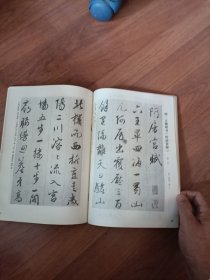 阿房宮賦
六王畢四海一蜀山
兀阿房出覆壓三百
餘里隔離天日驪山
北構而西折直走咸
陽二川溶〻流入宮
墻五步一樓十步一閣
廊腰縵迴簷牙高